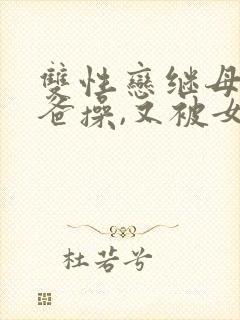 雙性戀继母
爸操,又被女
杜若兮